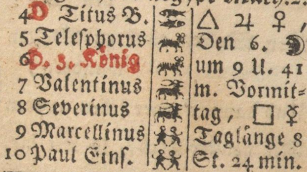 4 D Titus B. △ ♃ ♀,
5 Telesphorus Den 6. ☽
6 H. 3. König um 9 U. 41
7 Valentinus m. Vormit-
8 Severinus tag, □ ☿
9 Marcellinus Taglänge 8
10 Paul Eins. St. 24 min.